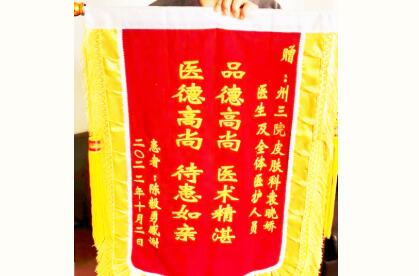 赠：州三院皮肤科袁晓娇
医生及全体医护人员
品德高尚 医术精湛
医德高尚 待患如亲
患者：陈毅勇感谢
二〇二二年十月二日